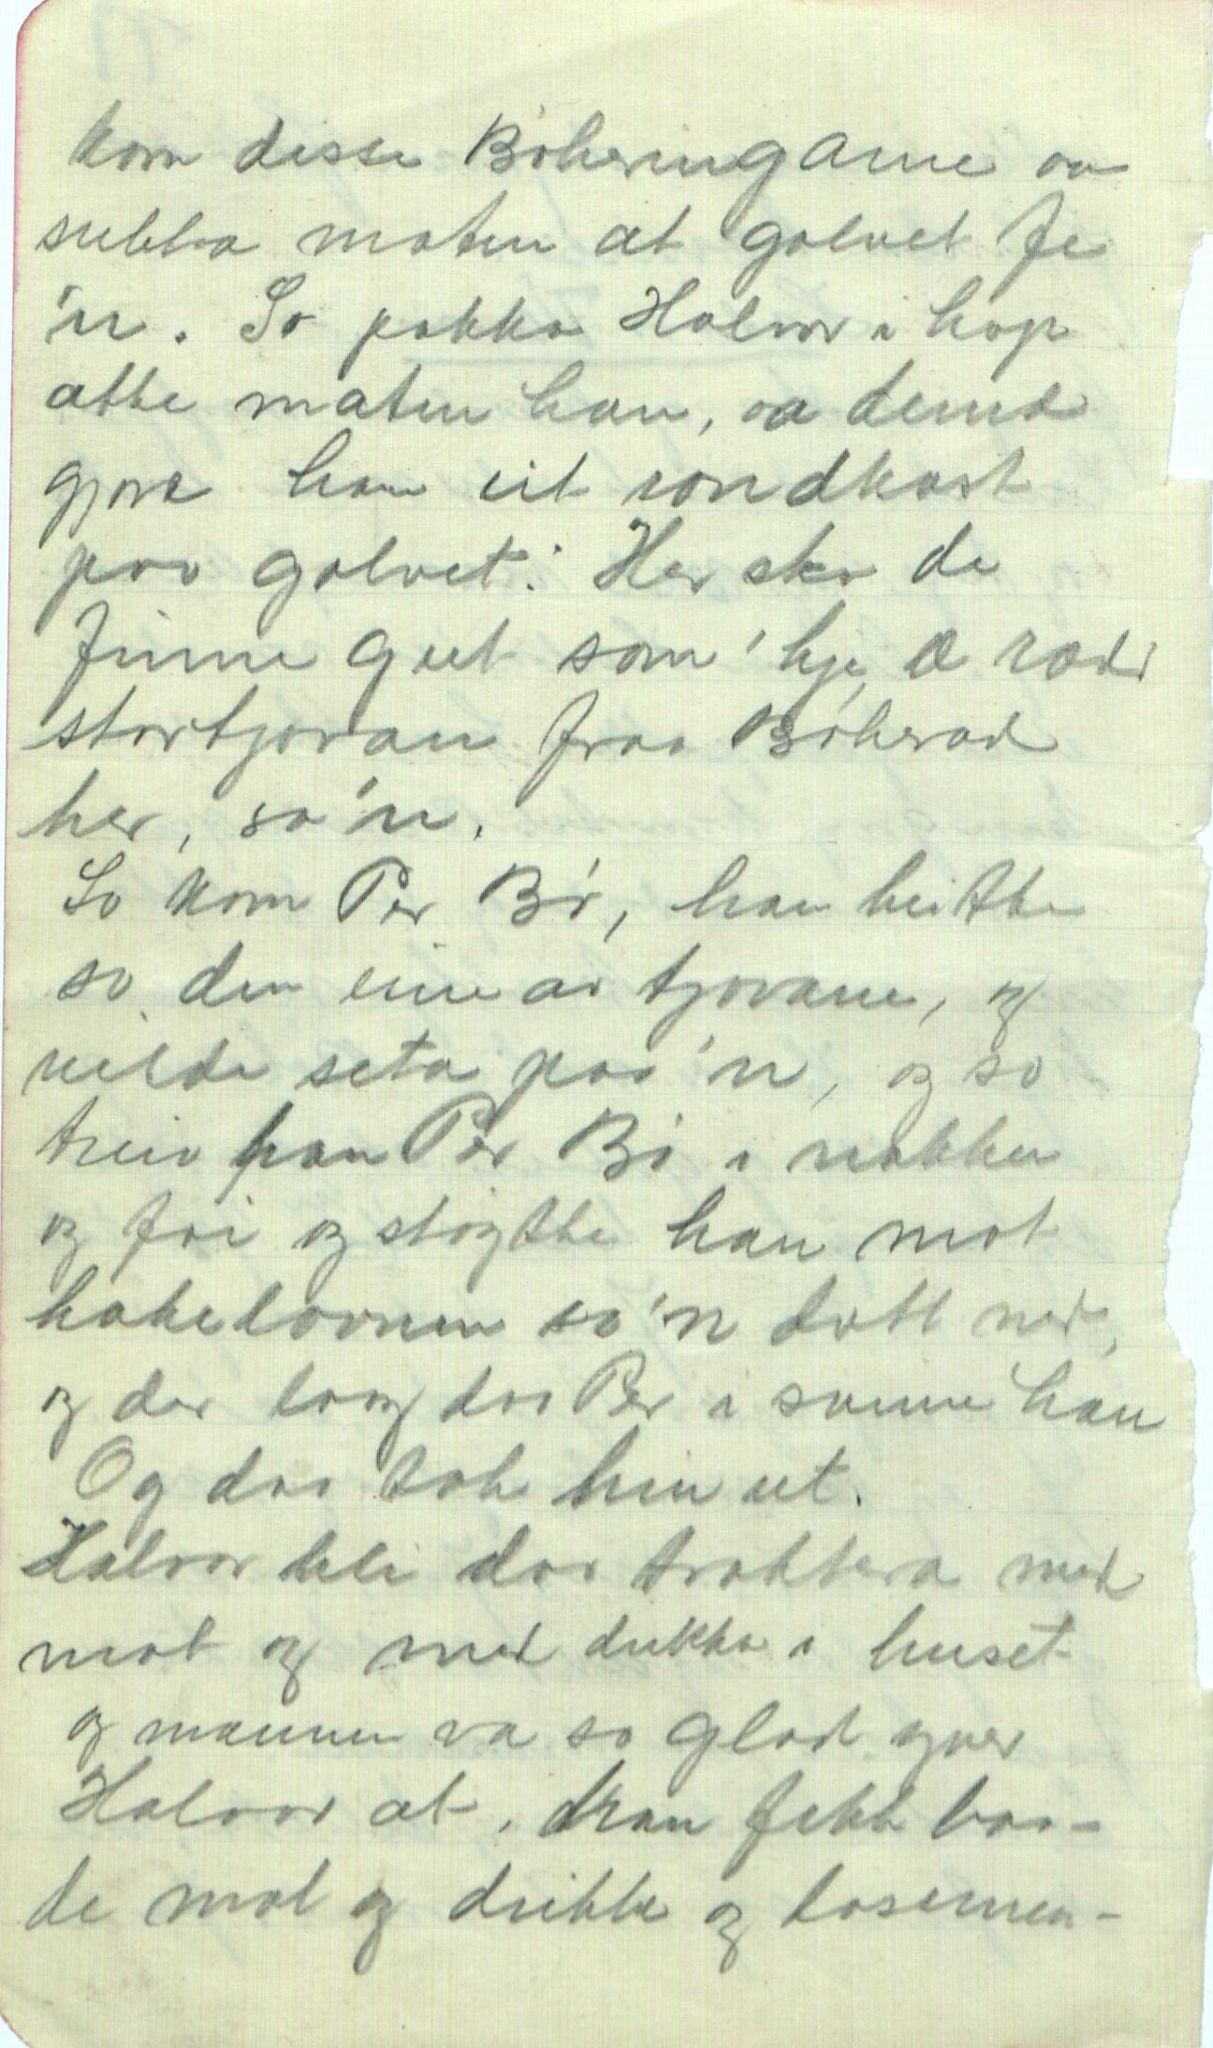 kom disse Bøheringarne aa
snekka maten at golvet fe
'n. So pakka Halvor i hop
atte maten han, aa dermæ
gjore han eit rondkast
paa golvet: Her ska de
finne gut som 'kje æ rædd
stortjovan fraa Bøherad
her, sa'n.
So kom Per Bø, han heitte
so den eine av tjovane, og
vilde seta paa'n, og so
treiv han Per Bø i nakken
og foi og støytte han mot
kakelovnen so'n datt ned,
og der laag daa Per i svime han
Og daa tok hin ut.
Halvor blei daa traktera med
mat og med drikka i huset
og mannen va so glad yver
Halvor at. Han fekk baa-
de mat og drikke og losemen-